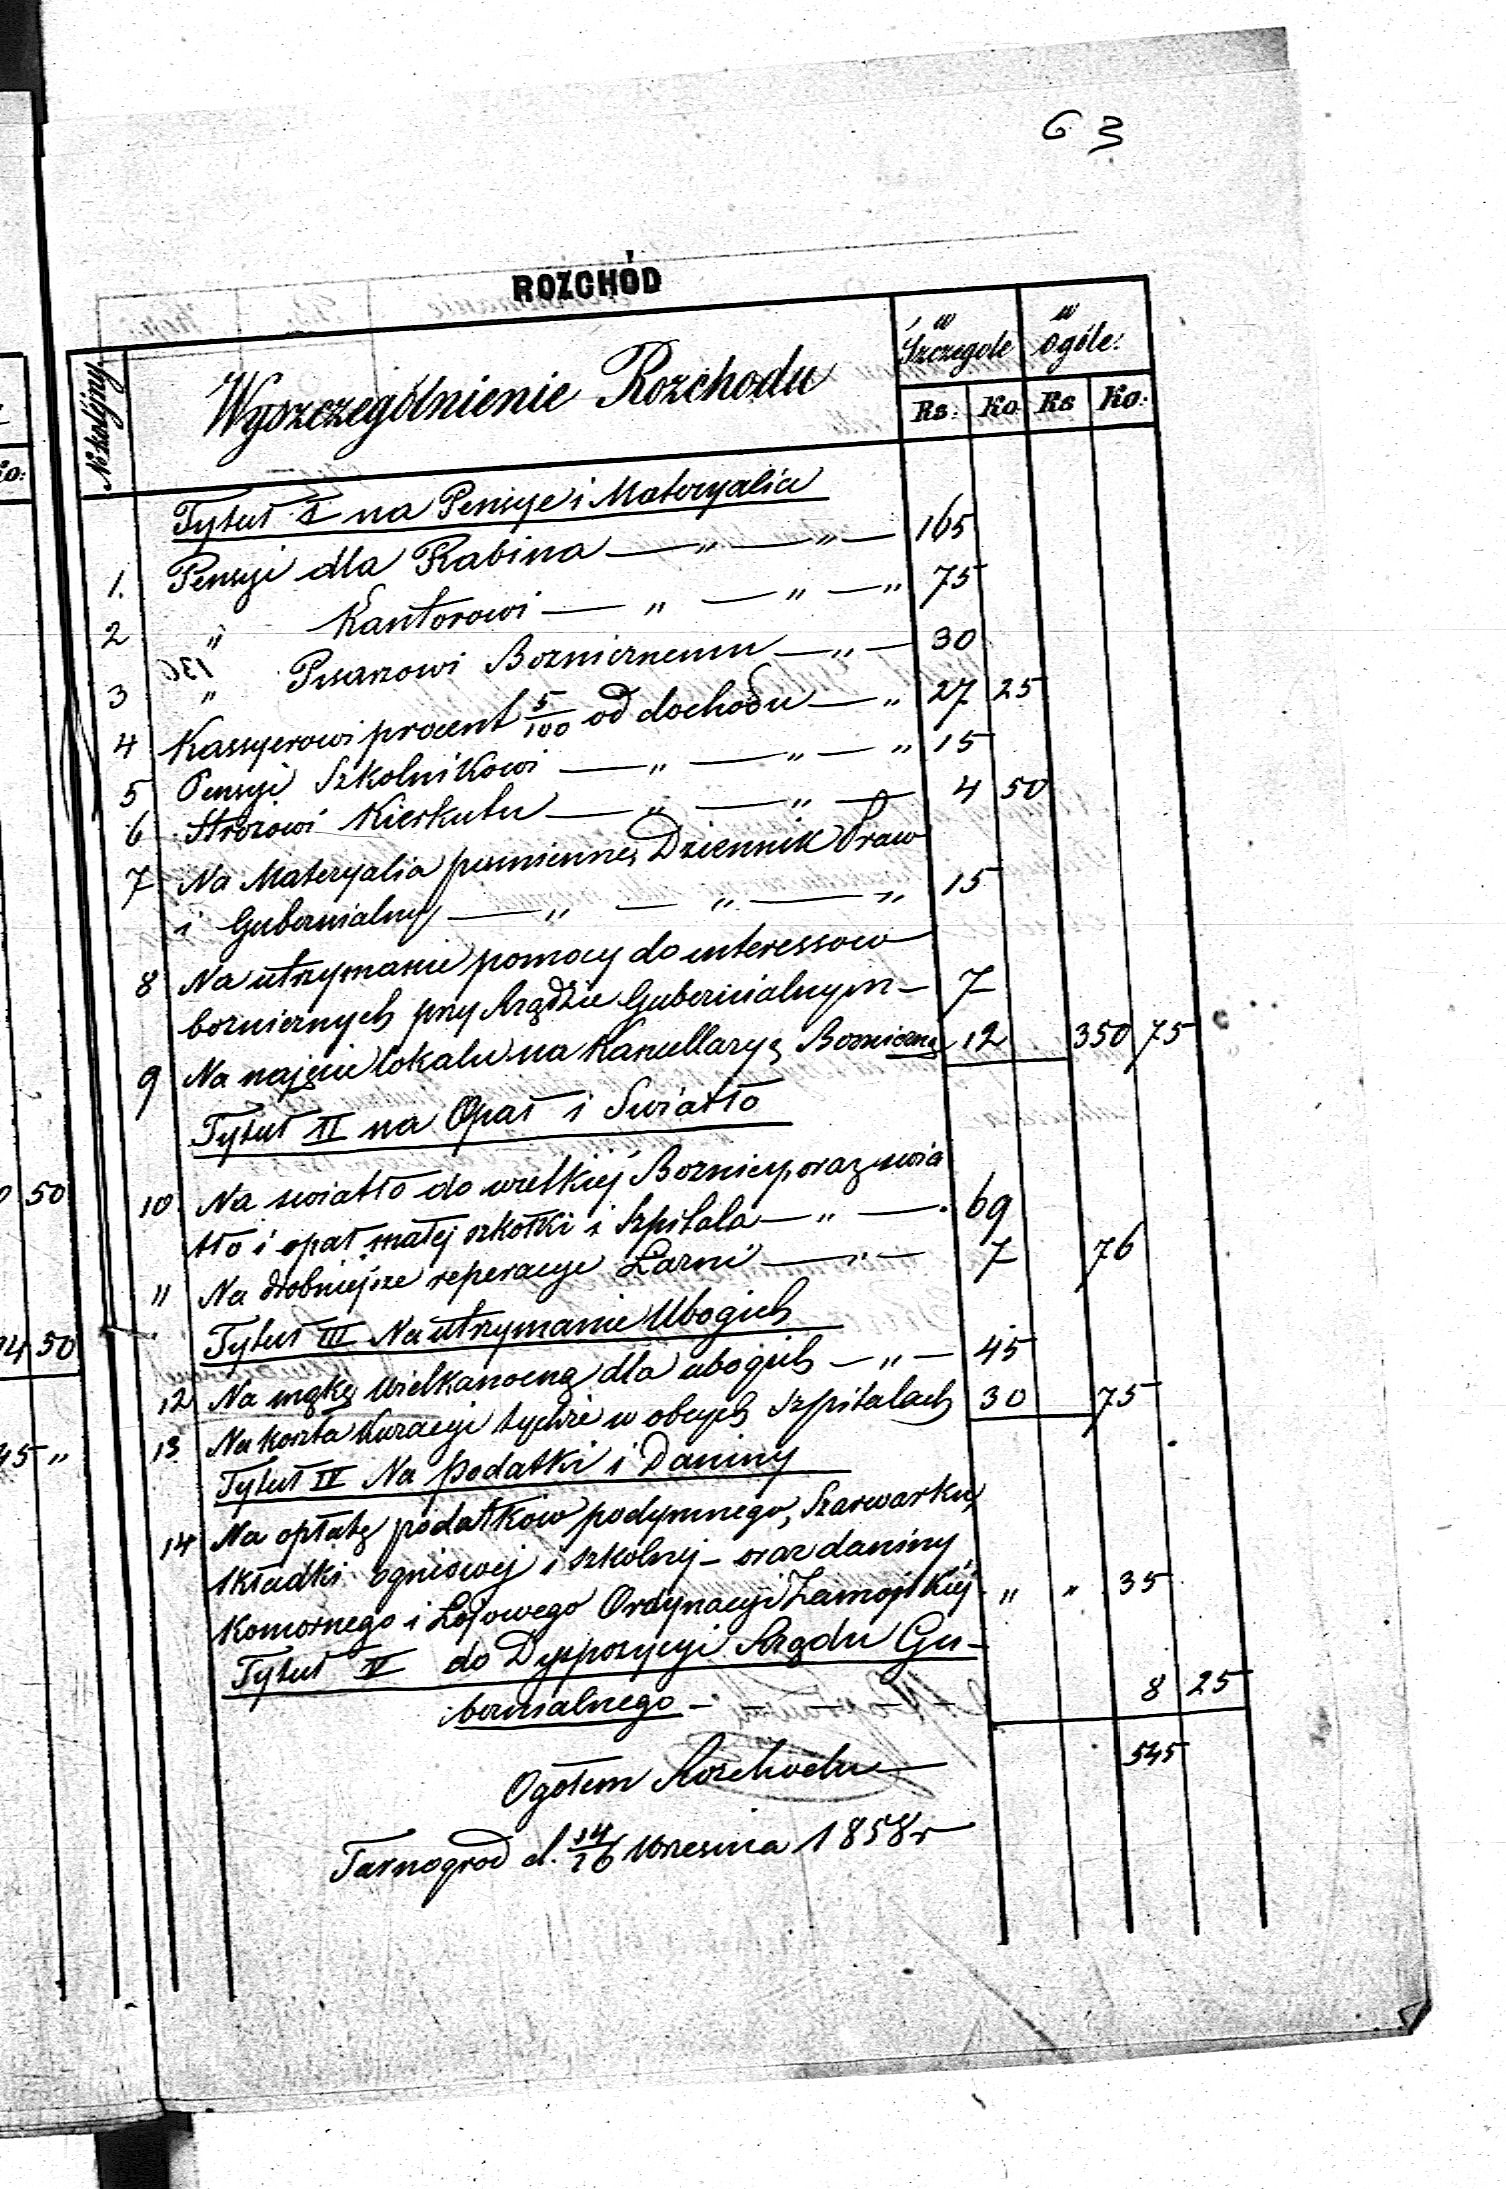 63
ROZCHÓD
№ kolejny Wyszczególnienie Rozchodu w Szczególe w ogóle:
Rs: Ko Rs Ko:
Tytuł I na Pensye i Materyalia
1. Pensyi dla Rabina — „ — „ — 165
2 „ Kantorowi — „ — „ — „ 75
3 „ Pisarzowi Boznicznemu — „ — 30
4 Kassyerowi procent 5/100 od dochodu — „ 27 25
5 Pensyi Szkolnikowi — „ — „ — „ 15
6 Strozowi Kierkutu — „ — „ — 4 50
7 Na Materyalia pismienne, Dziennik Praw
i Gubernialny — „ — „ — „ 15
8 Na utrzymanie pomocy do interessow
boznicznych przy Rządzie Gubernialnym — 7
9 Na najęcie lokalu na Kancellaryę Bozniczną 12 350 75
Tytuł II na Opał i Swiatło
10 Na swiatło do wielkiej Boznicy oraz swia
tło i opał małej szkołki i Szpitala — „ — 69
11 Na drobniejsze reperacye Łazni — „ — 7 76
Tytuł III Na utrzymanie Ubogich
12 Na mąkę Wielkanocną dla ubogich — „ — 45
13 Na koszta kuracyi tychże w obcych Szpitalach 30 75
Tytuł IV Na podatki i Daniny
14 Na opłatę podatków podymnego, Szarwarku,
składki ogniowej i szkolnej — oraz daniny
Komornego i Łojowego Ordynacyi Zamojskiej „ „ 35
Tytuł V do Dyspozycyi Rządu Gu-
bernialnego — — — — — 8 25
Ogółem Rozchodu — 545
Tarnogrod d. 14/26 Wrzesnia 1858 r
50
14 50
45 „
Ko: